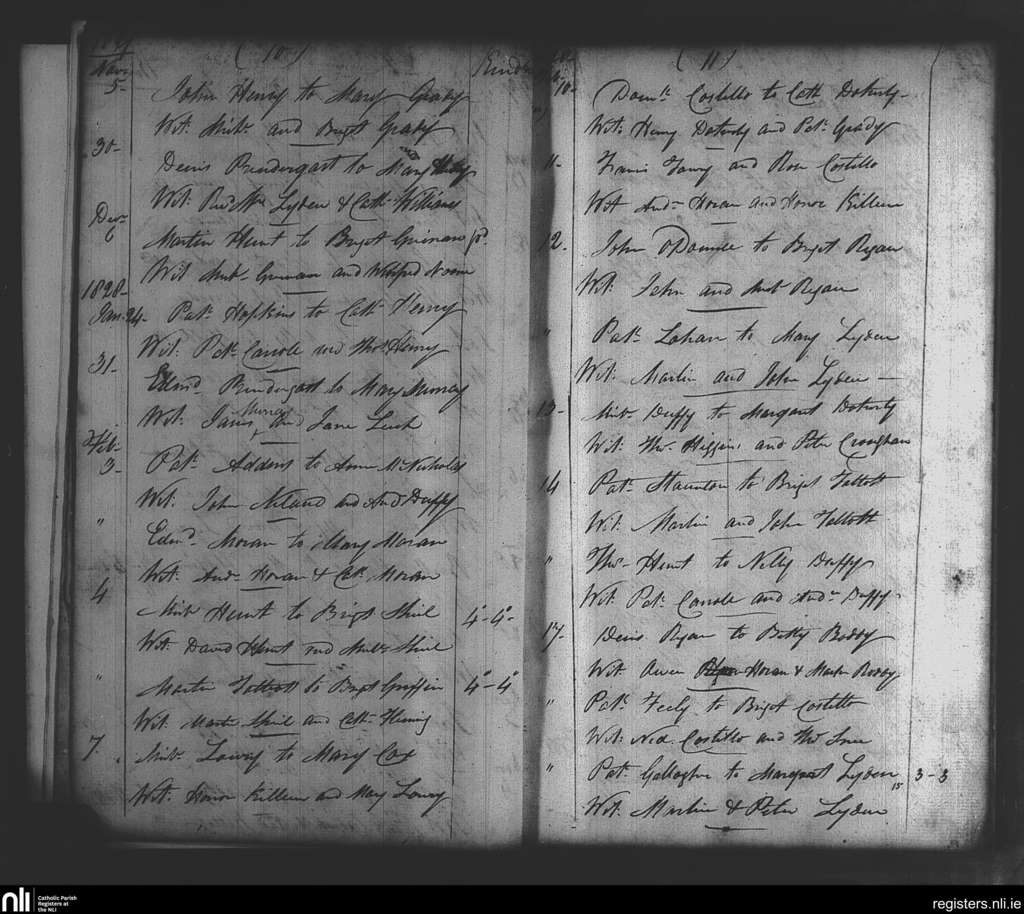 (10)
Novr
5- John Henry to Mary Grady
Wit. Michl. and Brigt Grady
30- Denis Prendergast to Mary
Wit. Revd. Mr Lyden & Cath. Williams
Decr
6 Martin Hunt to Brigt Guinan pd.
Wit Michl. Guinan and Winifred
1828-
Jan. 24- Patk. Hopkins to Cath Henry
Wit. Patk. Carrole and Thos. Henry
31- Edmd. Prendergast to Mary Murray
Wit. James Murray and Jane
Feb-
3- Patk. Addens to Anne McNicholas
Wit. John and Andw Duffy
" Edmd. Moran to Mary Moran
Wit. Andw Horan & Cath. Moran
4 Michl Hunt to Brigt Shiel 4-4-
Wit. David Hunt and Michl. Shiel
" Martin Tallott to Brigt Griffin 4-4
Wit. Martin Shiel and Cath. Fleming
7 Michl. Lowry to Mary Cox
Wit. Honor Killeen and Mary Lowry
(11)
10- Domk. Costillo to Cath Doherty-
Wit. Henry Doherty and Patk. Grady
11- Francis and Rose Costillo
Wit Andw Horan and Honor Killeen
12- John to Brigt Ryan
Wit. John and Michl Ryan
" Patk. Lohan to Mary Lyden
Wit. Martin and John Lyden
13- Michl. Duffy to Margaret Doherty
Wit. Thos. Higgins and Peter Croughan
14 Patk. Staunton to Brigt Tallott
Wit. Martin and John Tallott
" Thos. Hunt to Nelly Duffy
Wit. Patk. Carrole and Andw Duffy
17- Denis Ryan to Betty Boddy
Wit. Owen Horan & Martin
" Patk. Feely to Brigt Costillo
Wit. Ned. Costillo and Thos
" Patk. Gallagher to Margaret Lyden 3-3
15
Wit. Martin & Peter Lyden
nli
Catholic Parish
Registers at
the NLI
registers.nli.ie